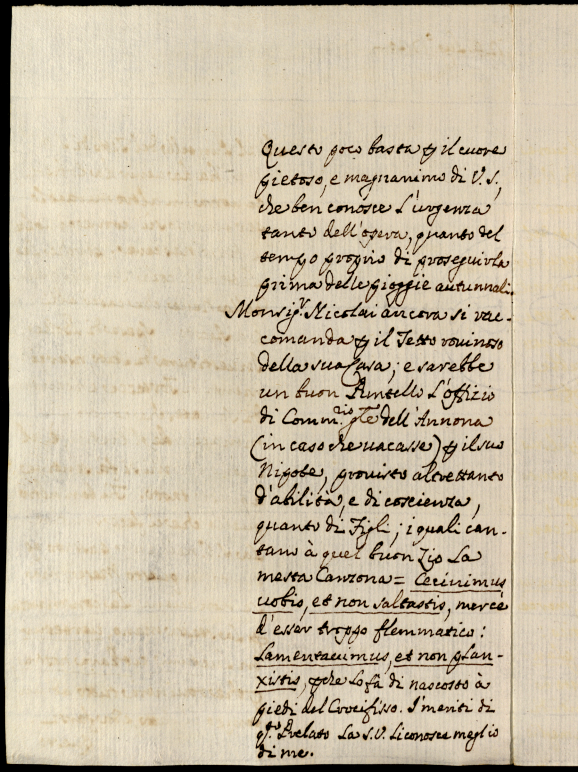 Questo poco basta p il cuore
pietoso, e magnanimo di V. S.,
che ben conosce l'urgenza
tanto dell'opera, quanto del
tempo proprio di proseguirla
prima delle pioggie autunnali.
Monsig.r Nicolai ancora si rac-
comanda p il Tetto rovinoso
della sua Casa; e sarebbe
un buon Puntello l'offizio
di Comm.rio gle dell'Annona
(in caso che uacasse) p il suo
Nipote, provisto altrettanto
d'abilità, e di coscienza,
quanto di Figli; i quali can-
tano à quel buon Zio la
mesta Canzona = Cecinimus
uobis, et non saltastis, mercè
d'esser troppo flemmatico:
Lamentauimus, et non plan-
xistis, pche lo fà di nascosto à
piedi del Crocifisso. I meriti di
q.to Prelato la S.V. li conosce meglio
di me.